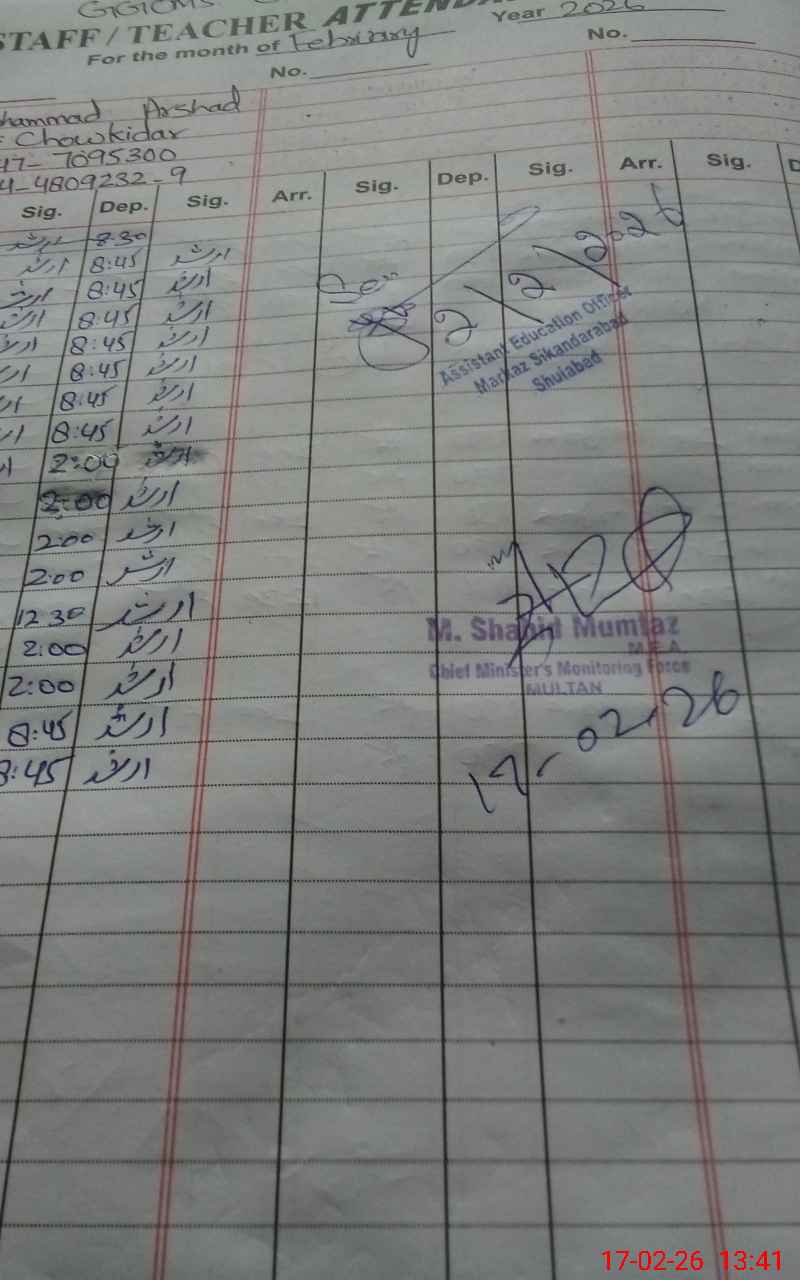 STAFF/TEACHER ATTEN
Year 2026
For the month of February
No.
No.
Arshad
Chowkidar
47-7095300
4-4809232-9
Sig. Dep. Sig. Arr. Sig. Dep. Sig. Arr. Sig.
8:30
ارشد 8:45 ارشد
ارشد 8:45 ارشد
ارشد 8:45 ارشد
8:45 ارشد
8:45 ارشد
8:45 ارشد
8:45 ارشد
2:00 ارشد
2:00 ارشد
2:00 ارشد
2:00 ارشد
12 30 ارشد
2:00 ارشد
2:00 ارشد
8:45 ارشد
8:45 ارشد
2/2/2026
Assistant Education Officer
Markaz Sikandarabad
Shujabad
M. Shahid Mumtaz
M.E.A.
Chief Minister's Monitoring Force
MULTAN
17-02-26
17-02-26 13:41